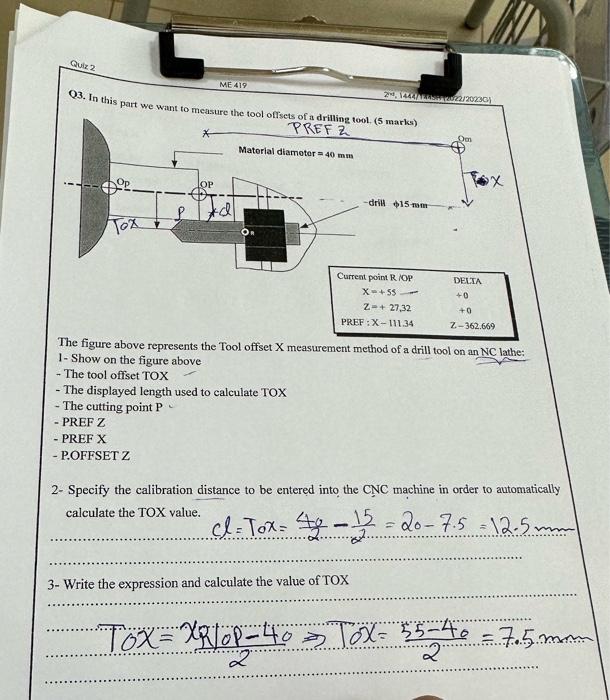 Quiz 2
ME 419
2nd, 1444/1445H (2022/2023G)
Q3. In this part we want to measure the tool offsets of a drilling tool. (5 marks)
PREF Z
X
Om
Material diameter = 40 mm
TOX
Op
OP
drill ϕ15 mm
P
d
TOX
R
Current point R /OP DELTA
X = + 55 +0
Z = + 27,32 +0
PREF : X – 111.34 Z – 362.669
The figure above represents the Tool offset X measurement method of a drill tool on an NC lathe:
1- Show on the figure above
- The tool offset TOX
- The displayed length used to calculate TOX
- The cutting point P
- PREF Z
- PREF X
- P.OFFSET Z
2- Specify the calibration distance to be entered into the CNC machine in order to automatically
calculate the TOX value.
d = TOX = 40/2 – 15/2 = 20 – 7.5 = 12.5 mm
3- Write the expression and calculate the value of TOX
TOX = XR/OP – 40 / 2 ⇒ TOX = 55 – 40 / 2 = 7.5 mm